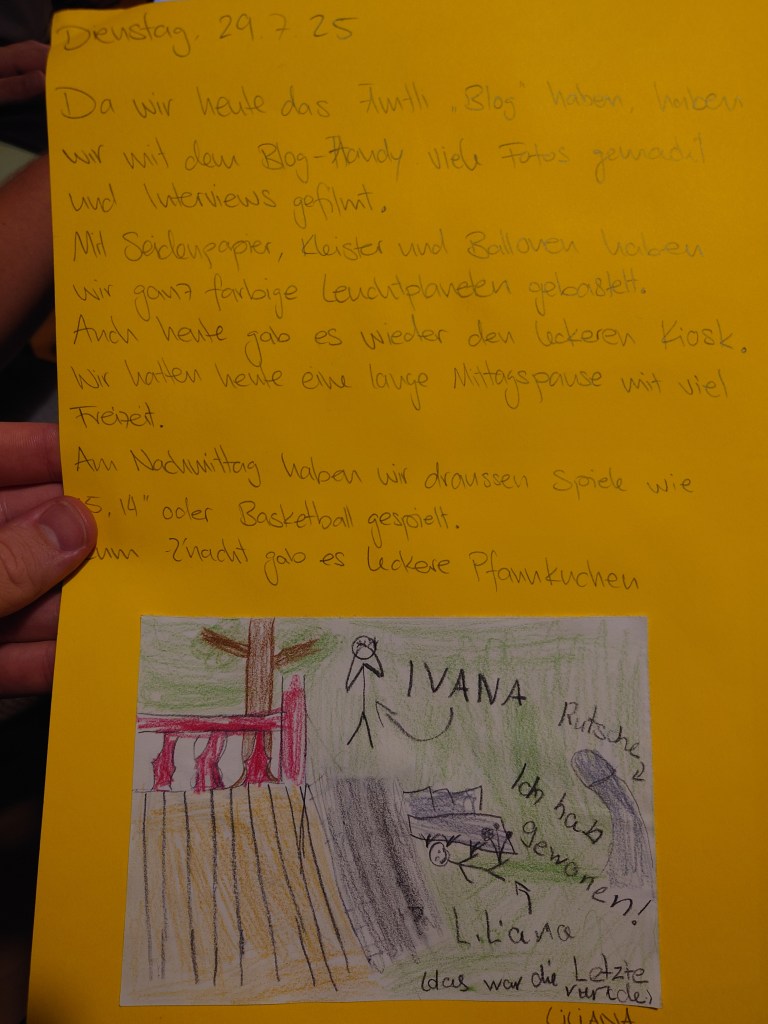 Dienstag. 29 7 25
Da wir heute das Ämtli „Blog" haben, haben
wir mit dem Blog-Handy viele Fotos gemacht
und Interviews gefilmt.
Mit Seidenpapier, Kleister und Ballonen haben
wir ganz farbige Leuchtplaneten gebastelt.
Auch heute gab es wieder den leckeren Kiosk.
Wir hatten heute eine lange Mittagspause mit viel
Freizeit.
Am Nachmittag haben wir draussen Spiele wie
15, 14" oder Basketball gespielt.
Zum Z'nacht gab es leckere Pfannkuchen
IVANA
Rutsche
Ich hab
gewonen!
Liliana
(das war die Letzte
runde)
LILIANA